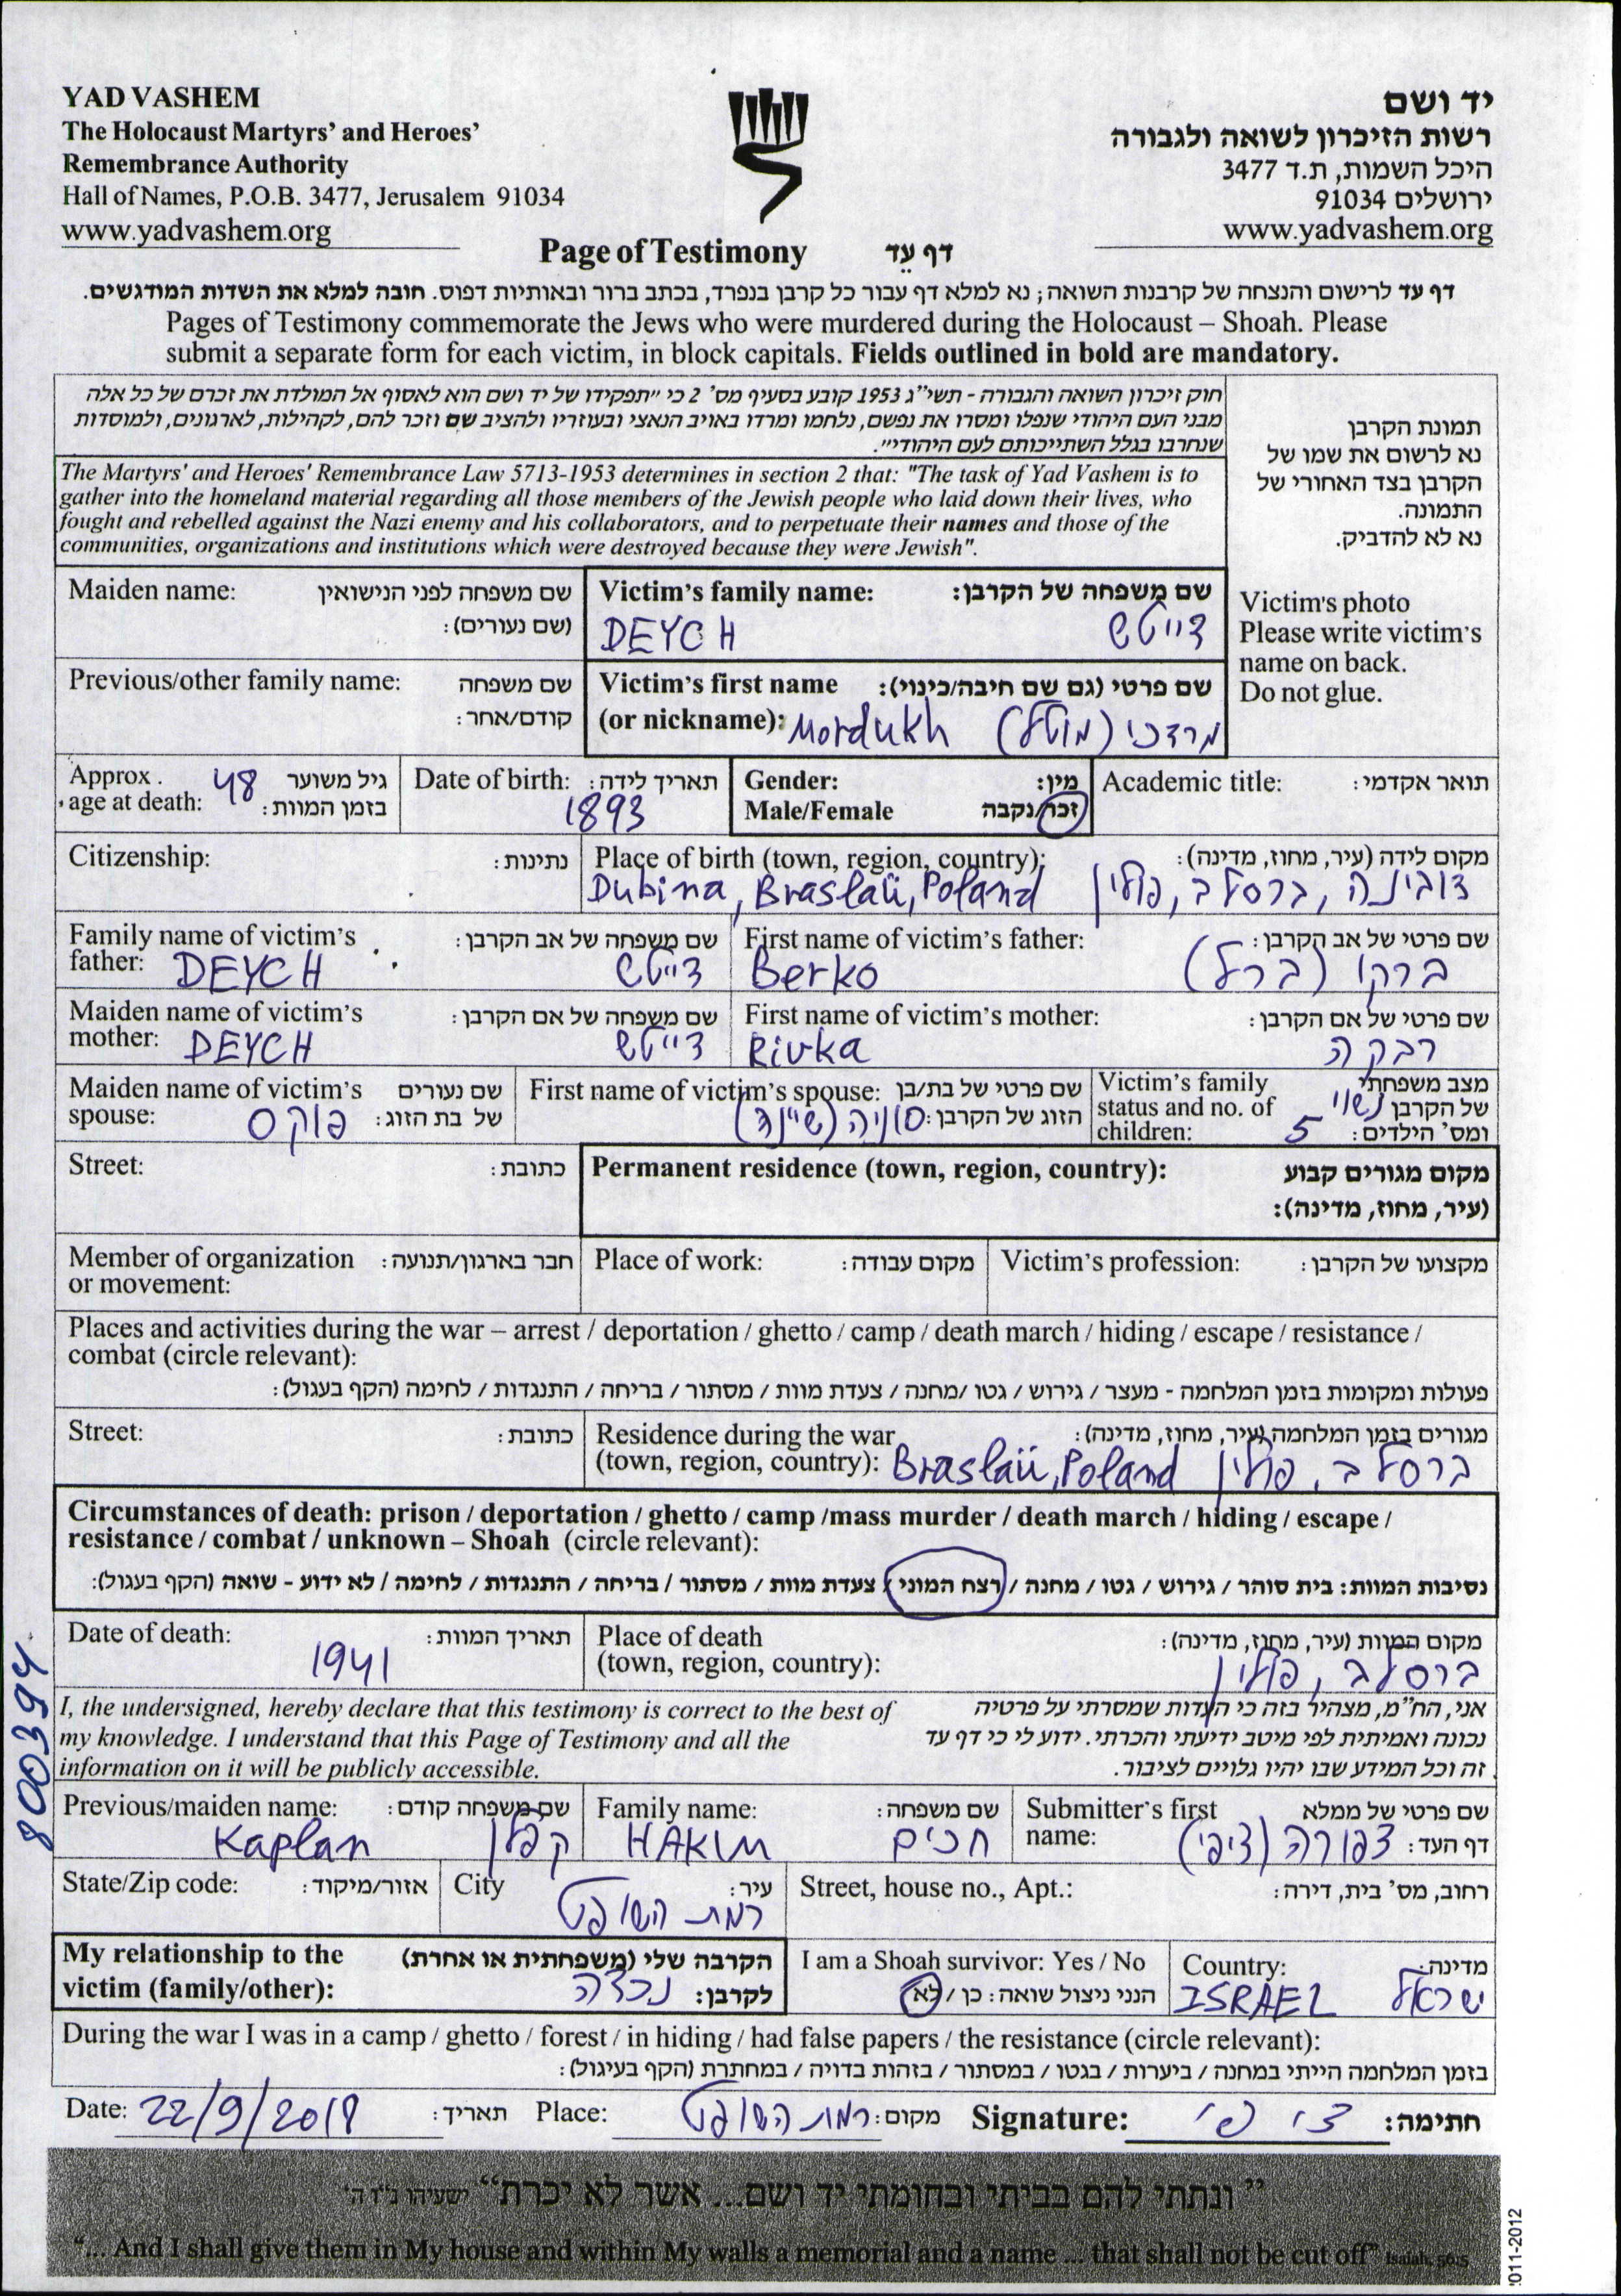 YAD VASHEM
The Holocaust Martyrs' and Heroes'
Remembrance Authority
Hall of Names, P.O.B. 3477, Jerusalem 91034
www.yadvashem.org
יד ושם
רשות הזיכרון לשואה ולגבורה
היכל השמות, ת.ד 3477
ירושלים 91034
www.yadvashem.org
Page of Testimony דף עֵד
דף עד לרישום והנצחה של קרבנות השואה; נא למלא דף עבור כל קרבן בנפרד, בכתב ברור ובאותיות דפוס. חובה למלא את השדות המודגשים.
Pages of Testimony commemorate the Jews who were murdered during the Holocaust – Shoah. Please
submit a separate form for each victim, in block capitals. Fields outlined in bold are mandatory.
חוק זיכרון השואה והגבורה - תשי"ג 1953 קובע בסעיף מס' 2 כי "תפקידו של יד ושם הוא לאסוף אל המולדת את זכרם של כל אלה
מבני העם היהודי שנפלו ומסרו את נפשם, נלחמו ומרדו באויב הנאצי ובעוזריו ולהציב שם וזכר להם, לקהילות, לארגונים, ולמוסדות
שנחרבו בגלל השתייכותם לעם היהודי".
The Martyrs' and Heroes' Remembrance Law 5713-1953 determines in section 2 that: "The task of Yad Vashem is to
gather into the homeland material regarding all those members of the Jewish people who laid down their lives, who
fought and rebelled against the Nazi enemy and his collaborators, and to perpetuate their names and those of the
communities, organizations and institutions which were destroyed because they were Jewish".
תמונת הקרבן
נא לרשום את שמו של
הקרבן בצד האחורי של
התמונה.
נא לא להדביק.
Victim's photo
Please write victim's
name on back.
Do not glue.
Maiden name: שם משפחה לפני הנישואין
(שם נעורים):
Victim's family name: שם משפחה של הקרבן:
DEYCH דייטש
Previous/other family name: שם משפחה
קודם/אחר:
Victim's first name שם פרטי (גם שם חיבה/כינוי):
(or nickname): Mordukh מרדכי (מוטל)
Approx. גיל משוער
age at death: 48 בזמן המוות:
Date of birth: תאריך לידה:
1893
Gender: מין:
Male/Female זכר/נקבה
Academic title: תואר אקדמי:
Citizenship: נתינות:
Place of birth (town, region, country): מקום לידה (עיר, מחוז, מדינה):
Dubina, Braslaü, Poland דובינה, ברסלב, פולין
Family name of victim's שם משפחה של אב הקרבן:
father: DEYCH דייטש
First name of victim's father: שם פרטי של אב הקרבן:
Berko ברקו (ברל)
Maiden name of victim's שם משפחה של אם הקרבן:
mother: DEYCH דייטש
First name of victim's mother: שם פרטי של אם הקרבן:
Rivka רבקה
Maiden name of victim's שם נעורים
spouse: של בת הזוג: פוקס
First name of victim's spouse: שם פרטי של בת/בן
הזוג של הקרבן: סוניה (שיינה)
Victim's family מצב משפחתי
status and no. of של הקרבן נשוי
children: ומס' הילדים: 5
Street: כתובת:
Permanent residence (town, region, country): מקום מגורים קבוע
(עיר, מחוז, מדינה):
Member of organization חבר בארגון/תנועה:
or movement:
Place of work: מקום עבודה:
Victim's profession: מקצועו של הקרבן:
Places and activities during the war – arrest / deportation / ghetto / camp / death march / hiding / escape / resistance /
combat (circle relevant):
פעולות ומקומות בזמן המלחמה - מעצר / גירוש / גטו /מחנה / צעדת מוות / מסתור / בריחה / התנגדות / לחימה (הקף בעגול):
Street: כתובת:
Residence during the war מגורים בזמן המלחמה (עיר, מחוז, מדינה):
(town, region, country): Braslaü, Poland ברסלב, פולין
Circumstances of death: prison / deportation / ghetto / camp /mass murder / death march / hiding / escape /
resistance / combat / unknown – Shoah (circle relevant):
נסיבות המוות: בית סוהר / גירוש / גטו / מחנה / רצח המוני / צעדת מוות / מסתור / בריחה / התנגדות / לחימה / לא ידוע - שואה (הקף בעגול):
Date of death: תאריך המוות:
1941
Place of death מקום המוות (עיר, מחוז, מדינה):
(town, region, country): ברסלב, פולין
I, the undersigned, hereby declare that this testimony is correct to the best of
my knowledge. I understand that this Page of Testimony and all the
information on it will be publicly accessible.
אני, הח"מ, מצהיר בזה כי העדות שמסרתי על פרטיה
נכונה ואמיתית לפי מיטב ידיעתי והכרתי. ידוע לי כי דף עד
זה וכל המידע שבו יהיו גלויים לציבור.
Previous/maiden name: שם משפחה קודם:
Kaplan קפלן
Family name: שם משפחה:
HAKIM חכים
Submitter's first שם פרטי של ממלא
name: דף העד: צפורה (ציפי)
State/Zip code: אזור/מיקוד:
City עיר:
רמת השופט
Street, house no., Apt.: רחוב, מס' בית, דירה:
My relationship to the הקרבה שלי (משפחתית או אחרת)
victim (family/other): לקרבן: נכדה
I am a Shoah survivor: Yes / No
הנני ניצול שואה: כן / לא
Country: מדינה:
ISRAEL ישראל
During the war I was in a camp / ghetto / forest / in hiding / had false papers / the resistance (circle relevant):
בזמן המלחמה הייתי במחנה / ביערות / בגטו / במסתור / בזהות בדויה / במחתרת (הקף בעיגול):
Date: 22/9/2018 תאריך: Place: רמת השופט מקום: Signature: ציפי חתימה:
"ונתתי להם בביתי ובחומתי יד ושם... אשר לא יכרת" ישעיהו נ"ו ה'
"... And I shall give them in My house and within My walls a memorial and a name ... that shall not be cut off" Isaiah, 56:5
800394
011-2012